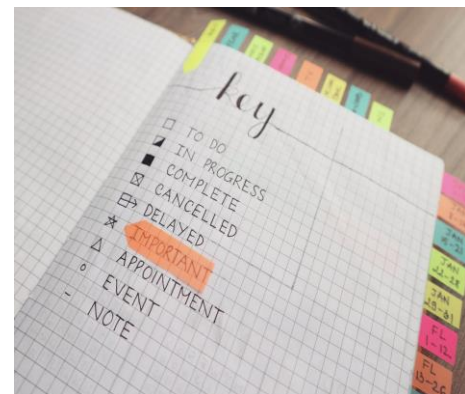 key
TO DO
IN PROGRESS
COMPLETE
CANCELLED
DELAYED
IMPORTANT
APPOINTMENT
EVENT
NOTE
JAN
15-21
JAN
22-28
JAN
29-31
FL
1-12
FL
13-20